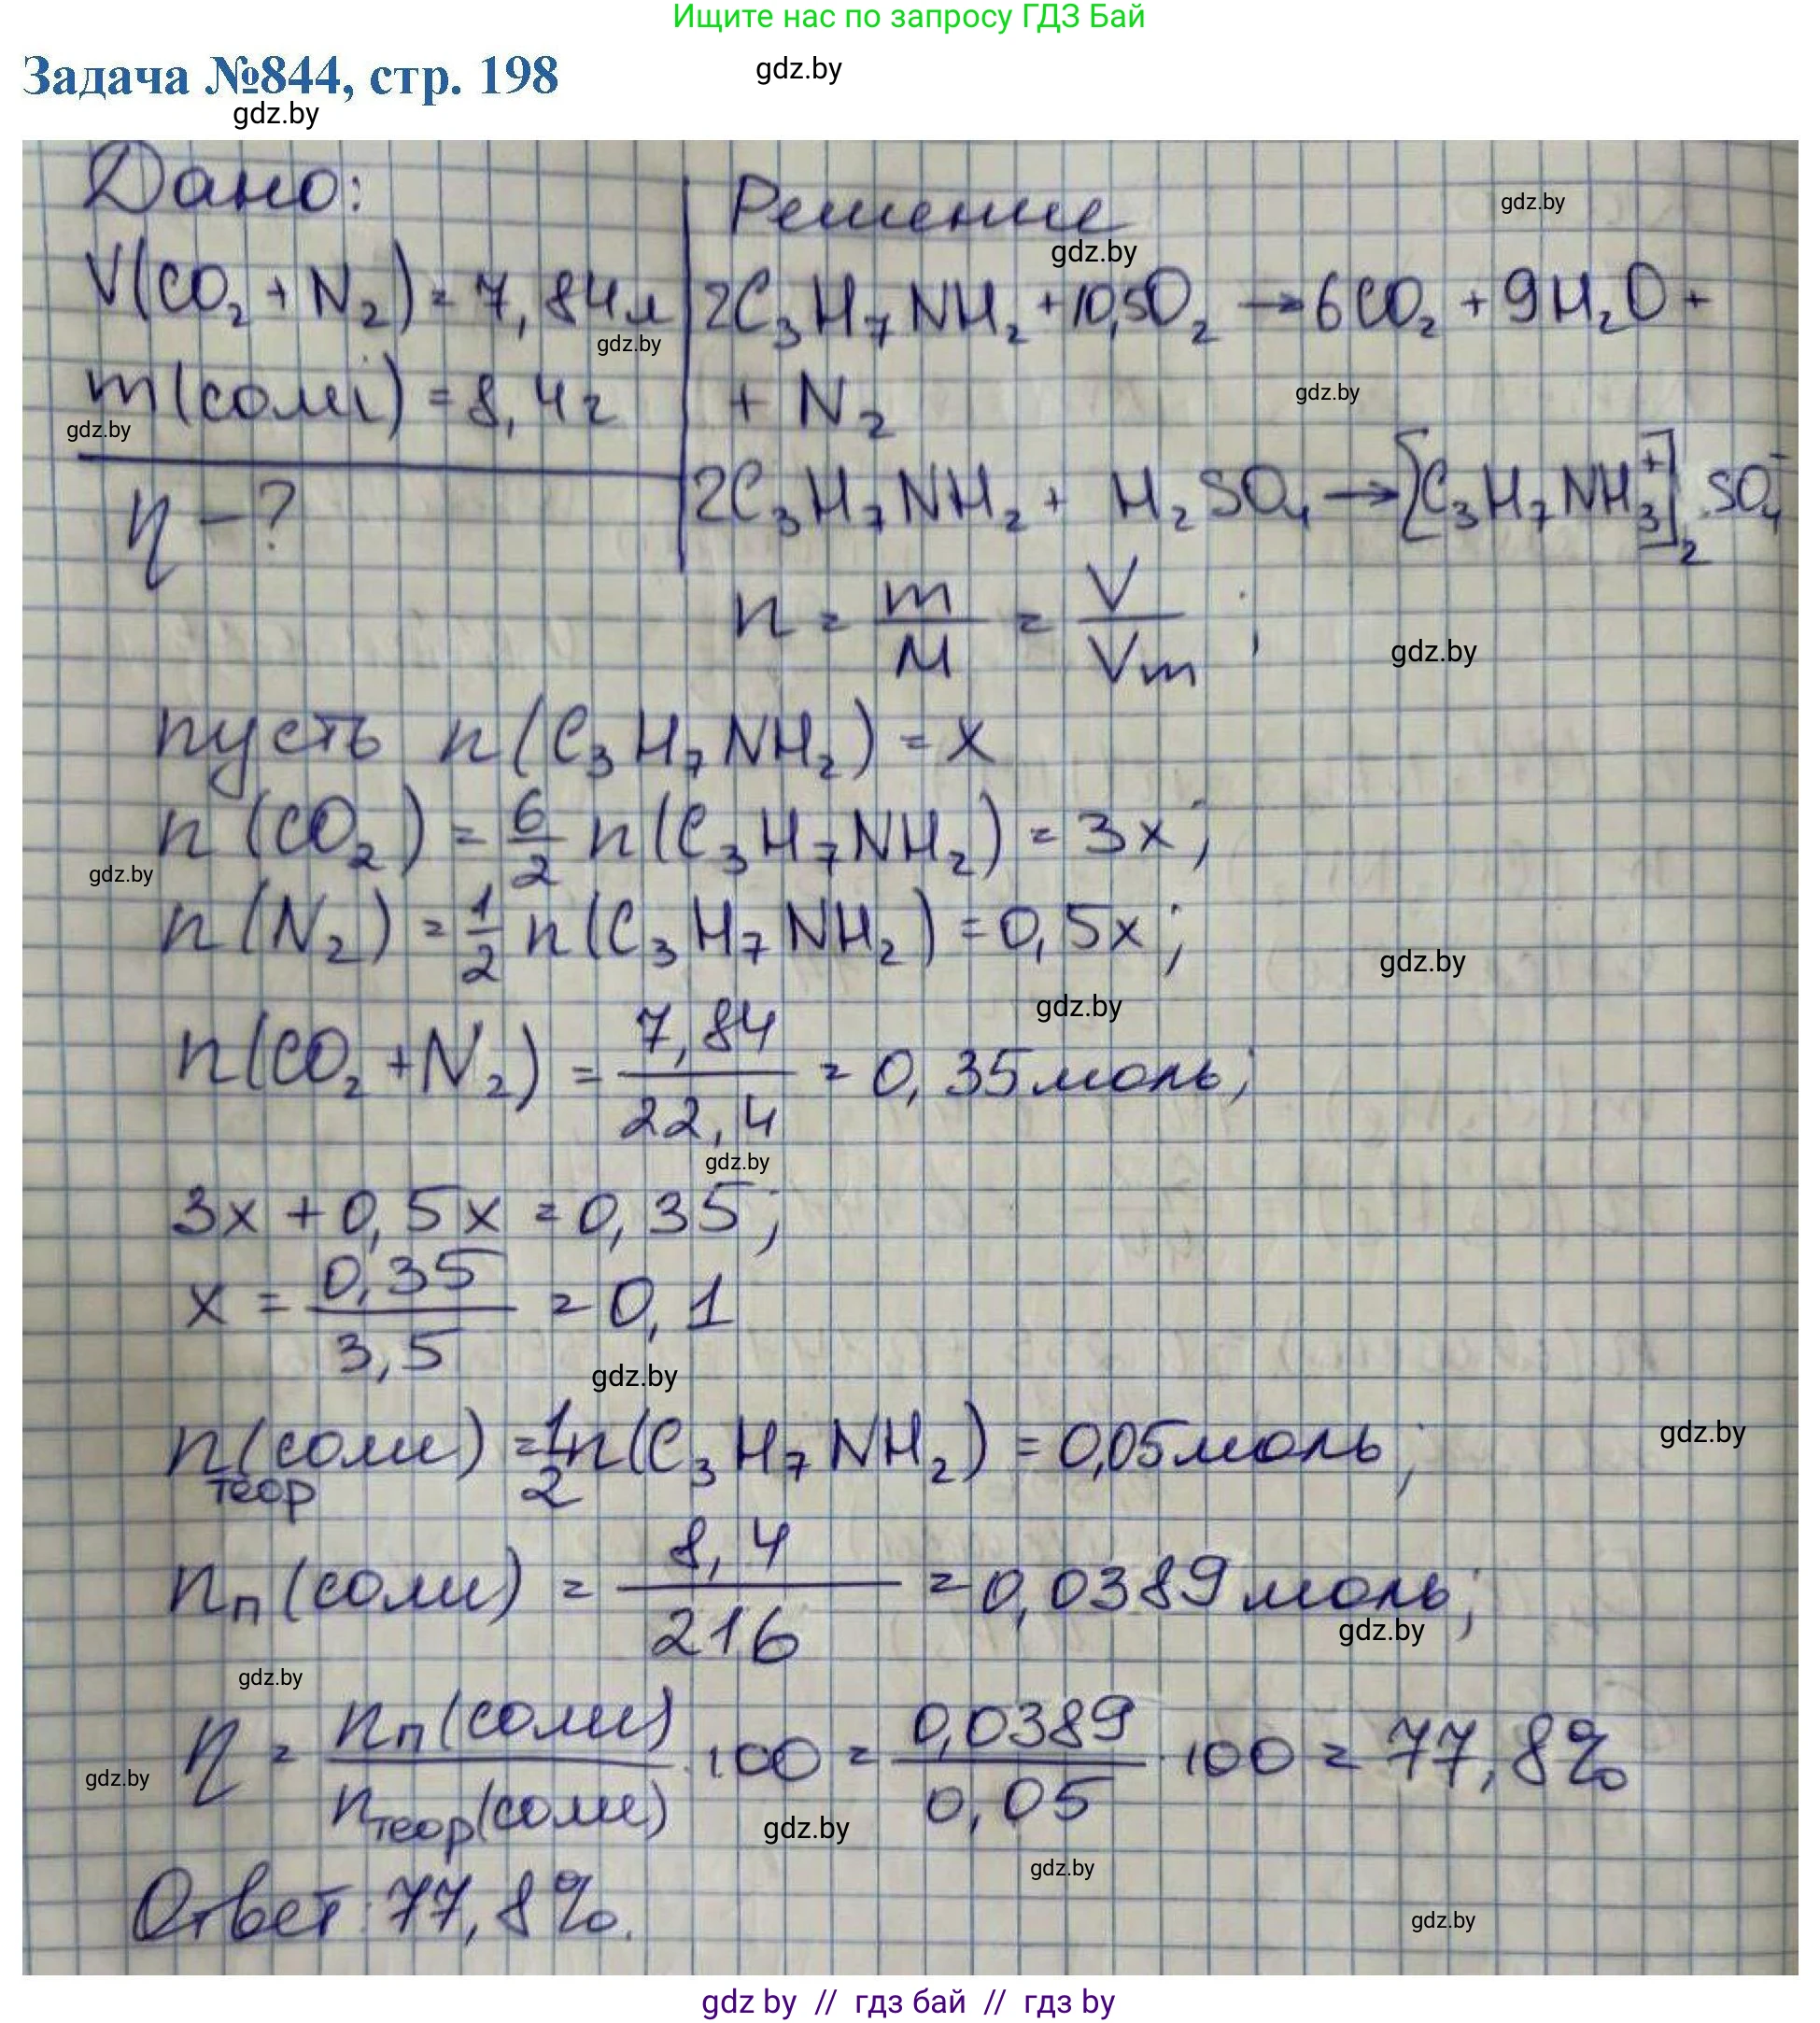 Ищите нас по запросу ГДЗ Бай
Задача №844, стр. 198
gdz.by
gdz.by
Дано:
Решение
gdz.by
gdz.by
V(CO₂ + N₂) = 7,84л
2C₃H₇NH₂ + 10,5O₂ → 6CO₂ + 9H₂O +
gdz.by
m(солі) = 8,4г
+ N₂
gdz.by
gdz.by
η - ?
2C₃H₇NH₂ + H₂SO₄ → [C₃H₇NH₃⁺]₂ SO₄⁻
n = m/M = V/Vm ;
gdz.by
пусть n(C₃H₇NH₂) = x
n(CO₂) = 6/2 n(C₃H₇NH₂) = 3x;
gdz.by
n(N₂) = 1/2 n(C₃H₇NH₂) = 0,5x;
gdz.by
gdz.by
n(CO₂ + N₂) = 7,84/22,4 = 0,35 моль;
gdz.by
3x + 0,5x = 0,35;
x = 0,35/3,5 = 0,1
gdz.by
n теор (соли) = 1/2 n(C₃H₇NH₂) = 0,05 моль;
gdz.by
nп (соли) = 8,4/216 = 0,0389 моль;
gdz.by
gdz.by
η = nп(соли)/nтеор(соли) · 100 = 0,0389/0,05 · 100 = 77,8%
gdz.by
gdz.by
gdz.by
Ответ: 77,8%.
gdz.by
gdz by // гдз бай // гдз by